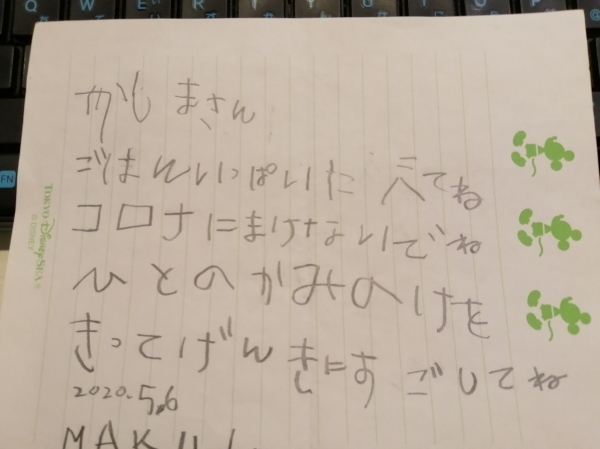 かしまさん
ごはんいっぱいたべてね
コロナにまけないでね
ひとのかみのけを
きってげんきにすごしてね
2020.5.6
TOKYO DisneySEA
© DISNEY
FN